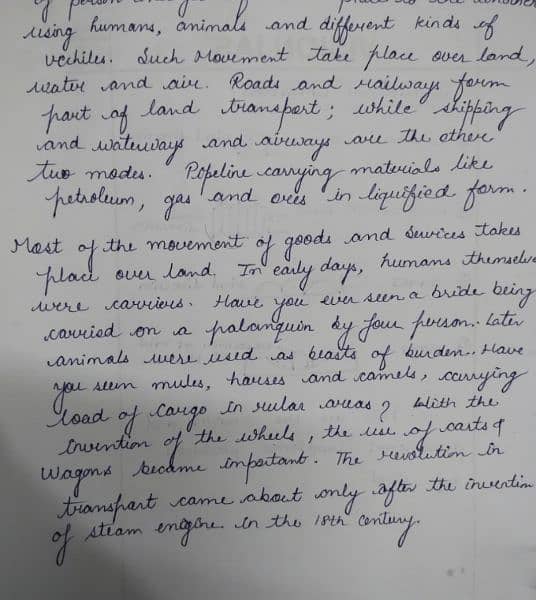 of person
using humans, animals and different kinds of
vechiles. Such Movement take place over land,
water and air. Roads and railways form
part of land transport; while shipping
and waterways and airways are the other
two modes. Pipeline carrying materials like
petroleum, gas and ores in liquified form.
Most of the movement of goods and services takes
place over land. In early days, humans themselve
were carriers. Have you ever seen a bride being
carried on a palanquin by four person. Later
animals were used as beasts of burden. Have
you seen mules, horses and camels, carrying
load of cargo in rular areas? With the
invention of the wheels, the use of carts &
wagons became important. The revolution in
transport came about only after the invention
of steam engine in the 18th century.